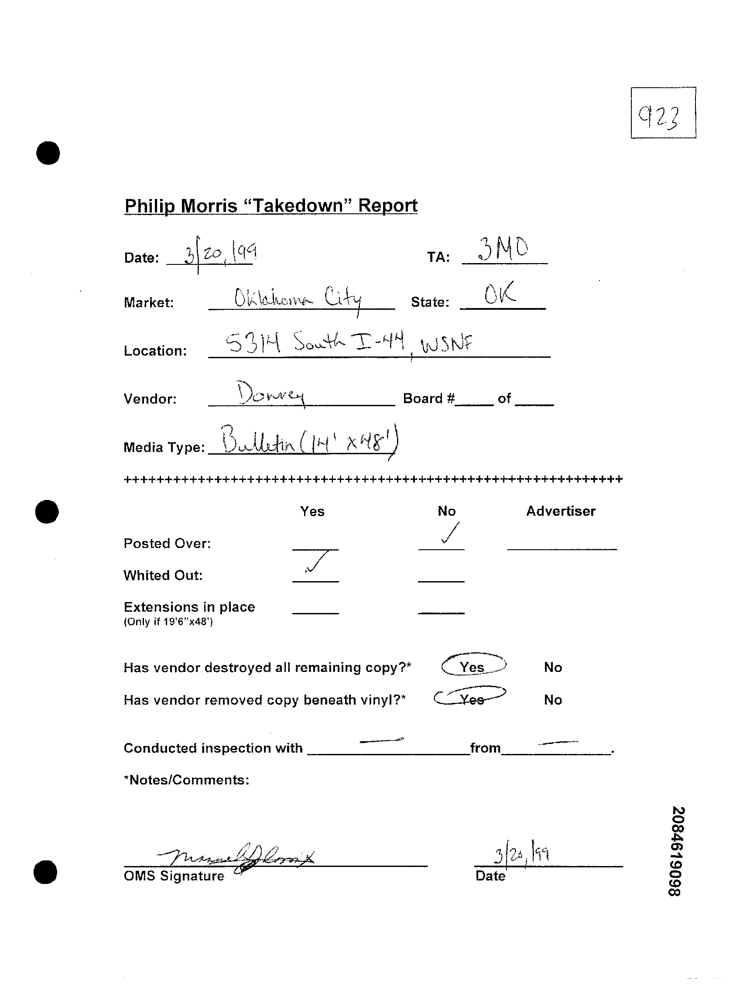 923
Philip Morris “Takedown” Report
Date: 3/20/99 TA: 3MO
Market: Oklahoma City State: OK
Location: 5314 South I-44, WSNF
Vendor: Donrey Board # of
Media Type: Bulletin (14' x 48')
++++++++++++++++++++++++++++++++++++++++++++++++++++++++++++++
Yes No Advertiser
Posted Over: ✓
Whited Out: ✓
Extensions in place
(Only if 19'6"x48')
Has vendor destroyed all remaining copy?* Yes No
Has vendor removed copy beneath vinyl?* Yes No
Conducted inspection with — from — .
*Notes/Comments:
3/20/99
OMS Signature Date
2084619098